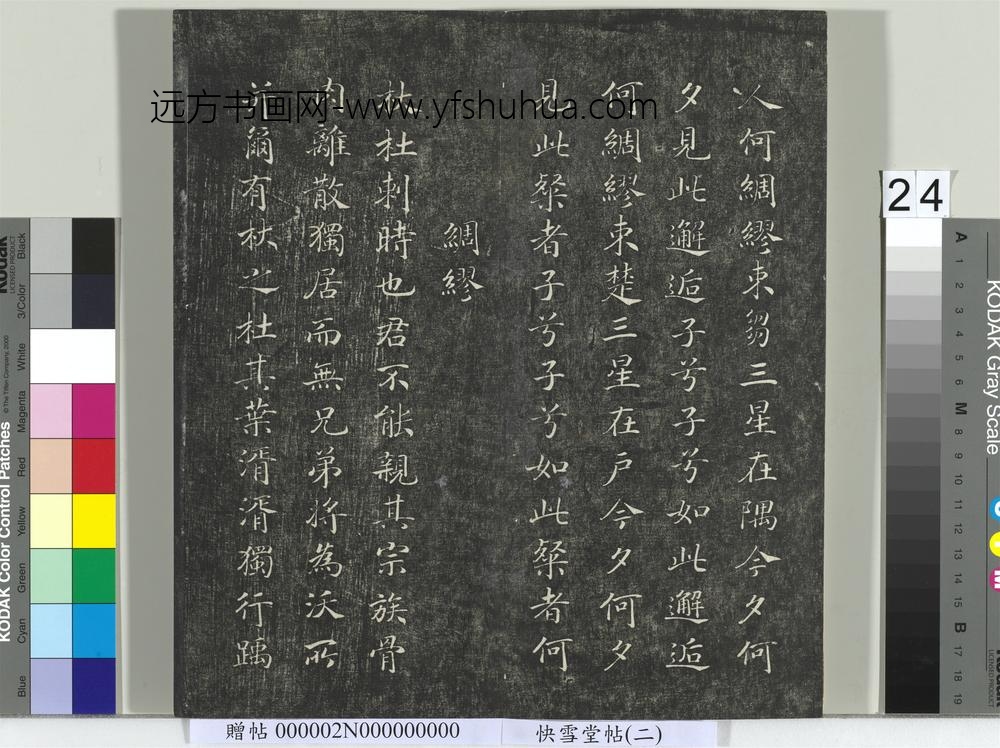 人何綢繆束芻三星在隅今夕何
夕見此邂逅子兮子兮如此邂逅
何綢繆束楚三星在户今夕何夕
見此粲者子兮子兮如此粲者何
綢繆
杕杜刺時也君不能親其宗族骨
肉離散獨居而無兄弟將為沃所
并爾有杕之杜其葉湑湑獨行踽
远方书画网-www.yfshuhua.com
24
贈帖 000002N000000000
快雪堂帖(二)
KODAK Color Control Patches
© The Tiffen Company, 2000
Kodak
LICENSED PRODUCT
Blue
Cyan
Green
Yellow
Red
Magenta
White
3/Color
Black
KODAK Gray Scale
A 1 2 3 4 5 6 M 8 9 10 11 12 13 14 15 B 17 18 19